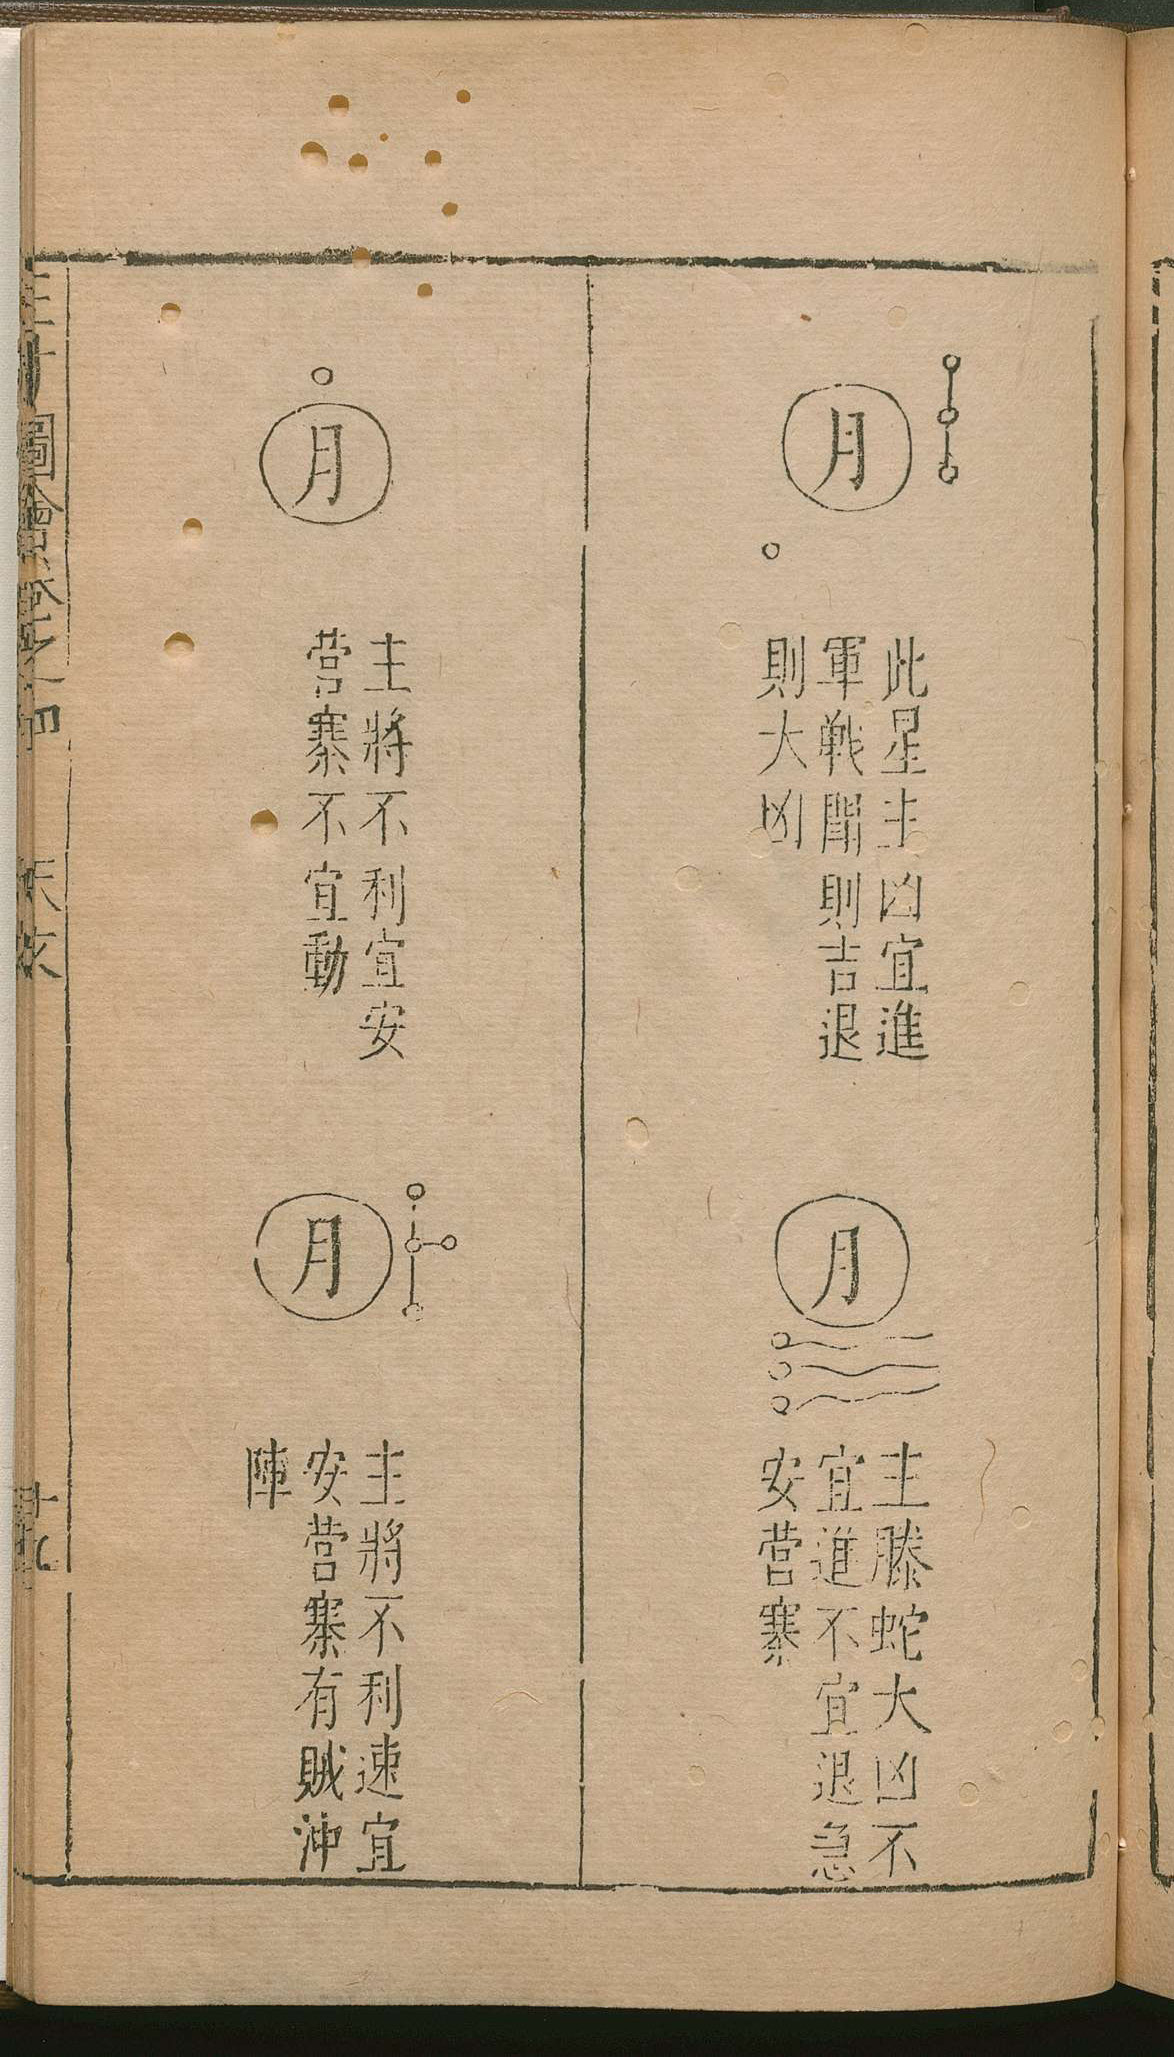 月
此星主凶宜進
軍戦鬭則吉退
則大凶
月
主滕蛇大凶不
宜進不宜退急
安营寨
月
主將不利宜安
营寨不宜動
月
主將不利速宜
安营寨有賊沖
陣
圖會卷之四